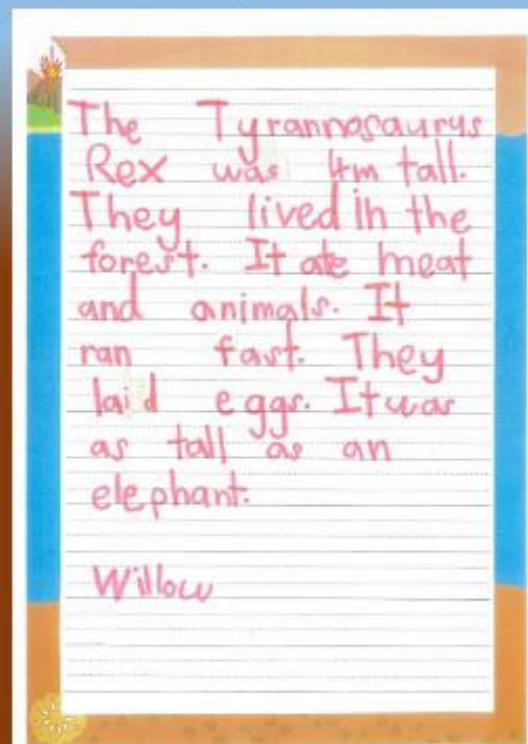 The Tyrannosaurus
Rex was 4m tall.
They lived in the
forest. It ate meat
and animals. It
ran fast. They
laid eggs. It was
as tall as an
elephant.
Willow